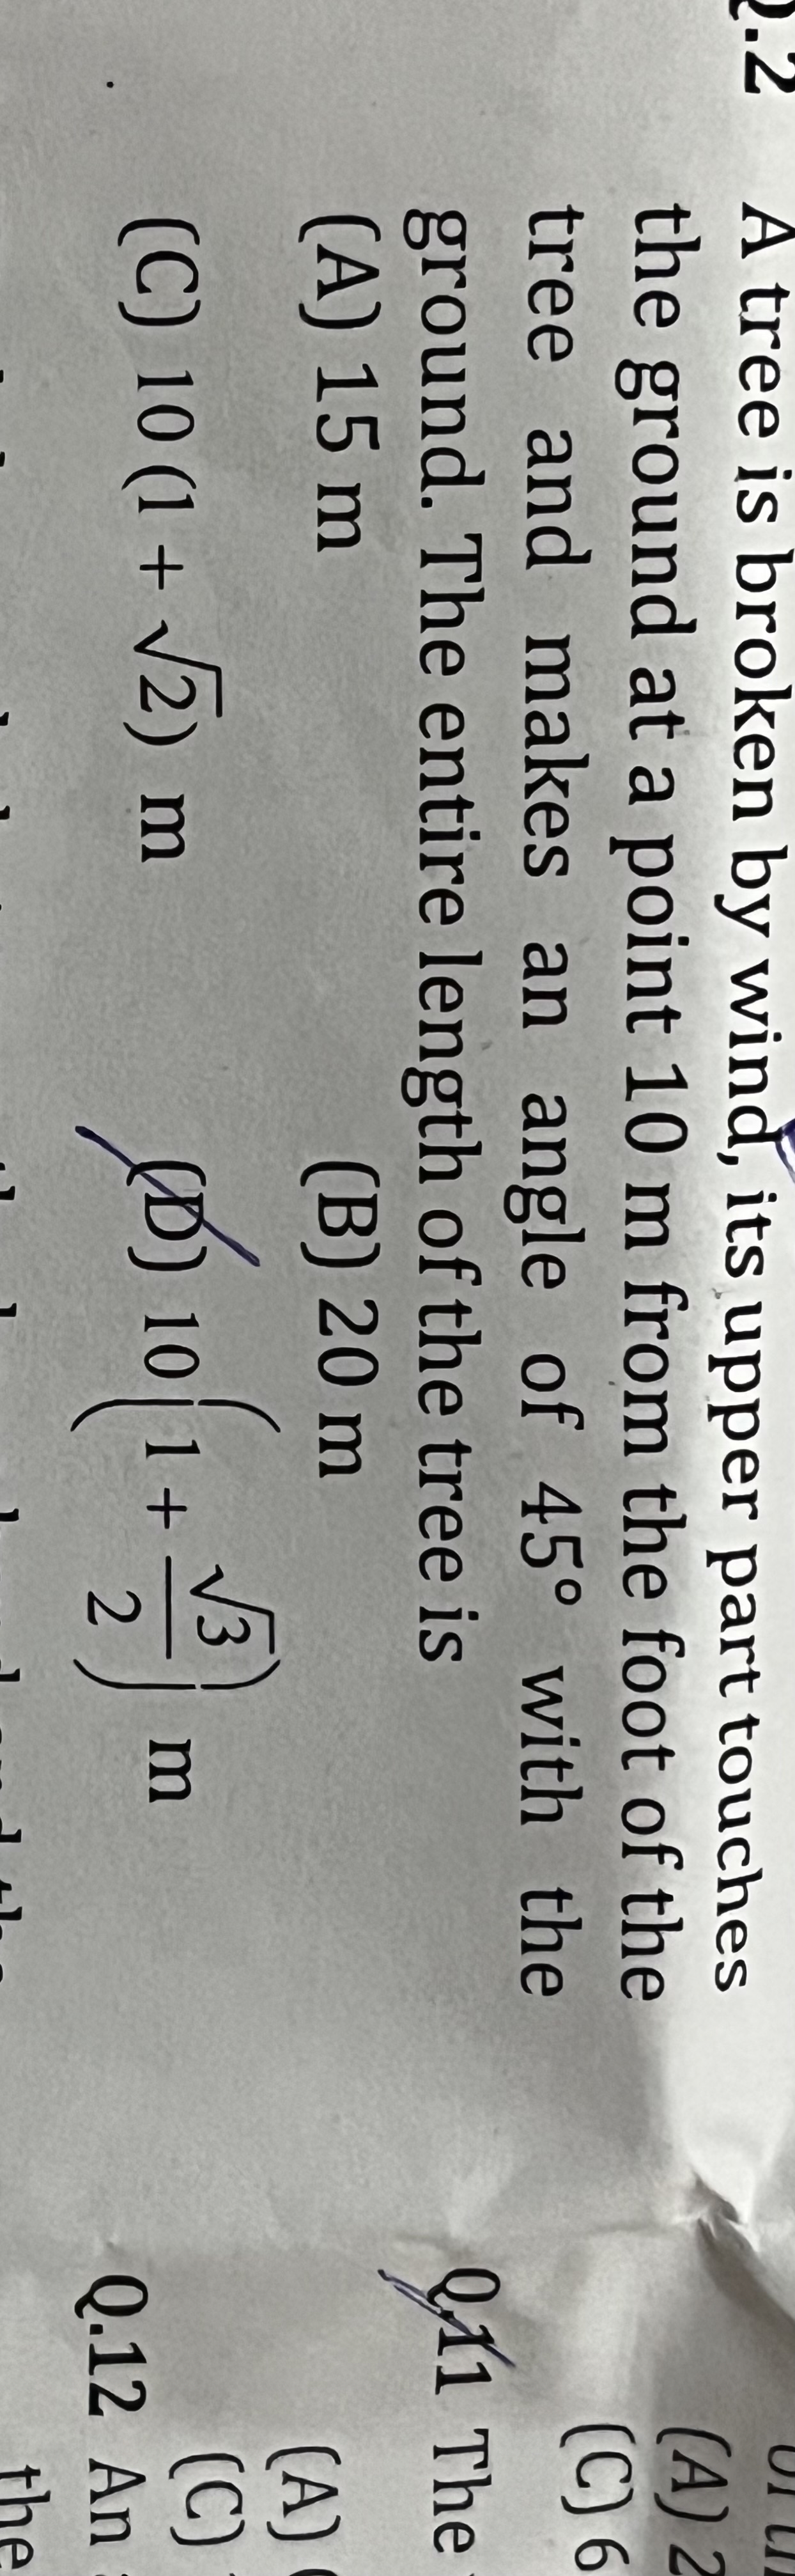 .2 A tree is broken by wind, its upper part touches
the ground at a point 10 m from the foot of the
tree and makes an angle of 45° with the
ground. The entire length of the tree is
(A) 15 m (B) 20 m
(C) 10 (1 + √2) m (D) 10(1 + √3/2) m
(A) 2
(C) 6
Q.11 The
(A)
(C)
Q.12 An
the